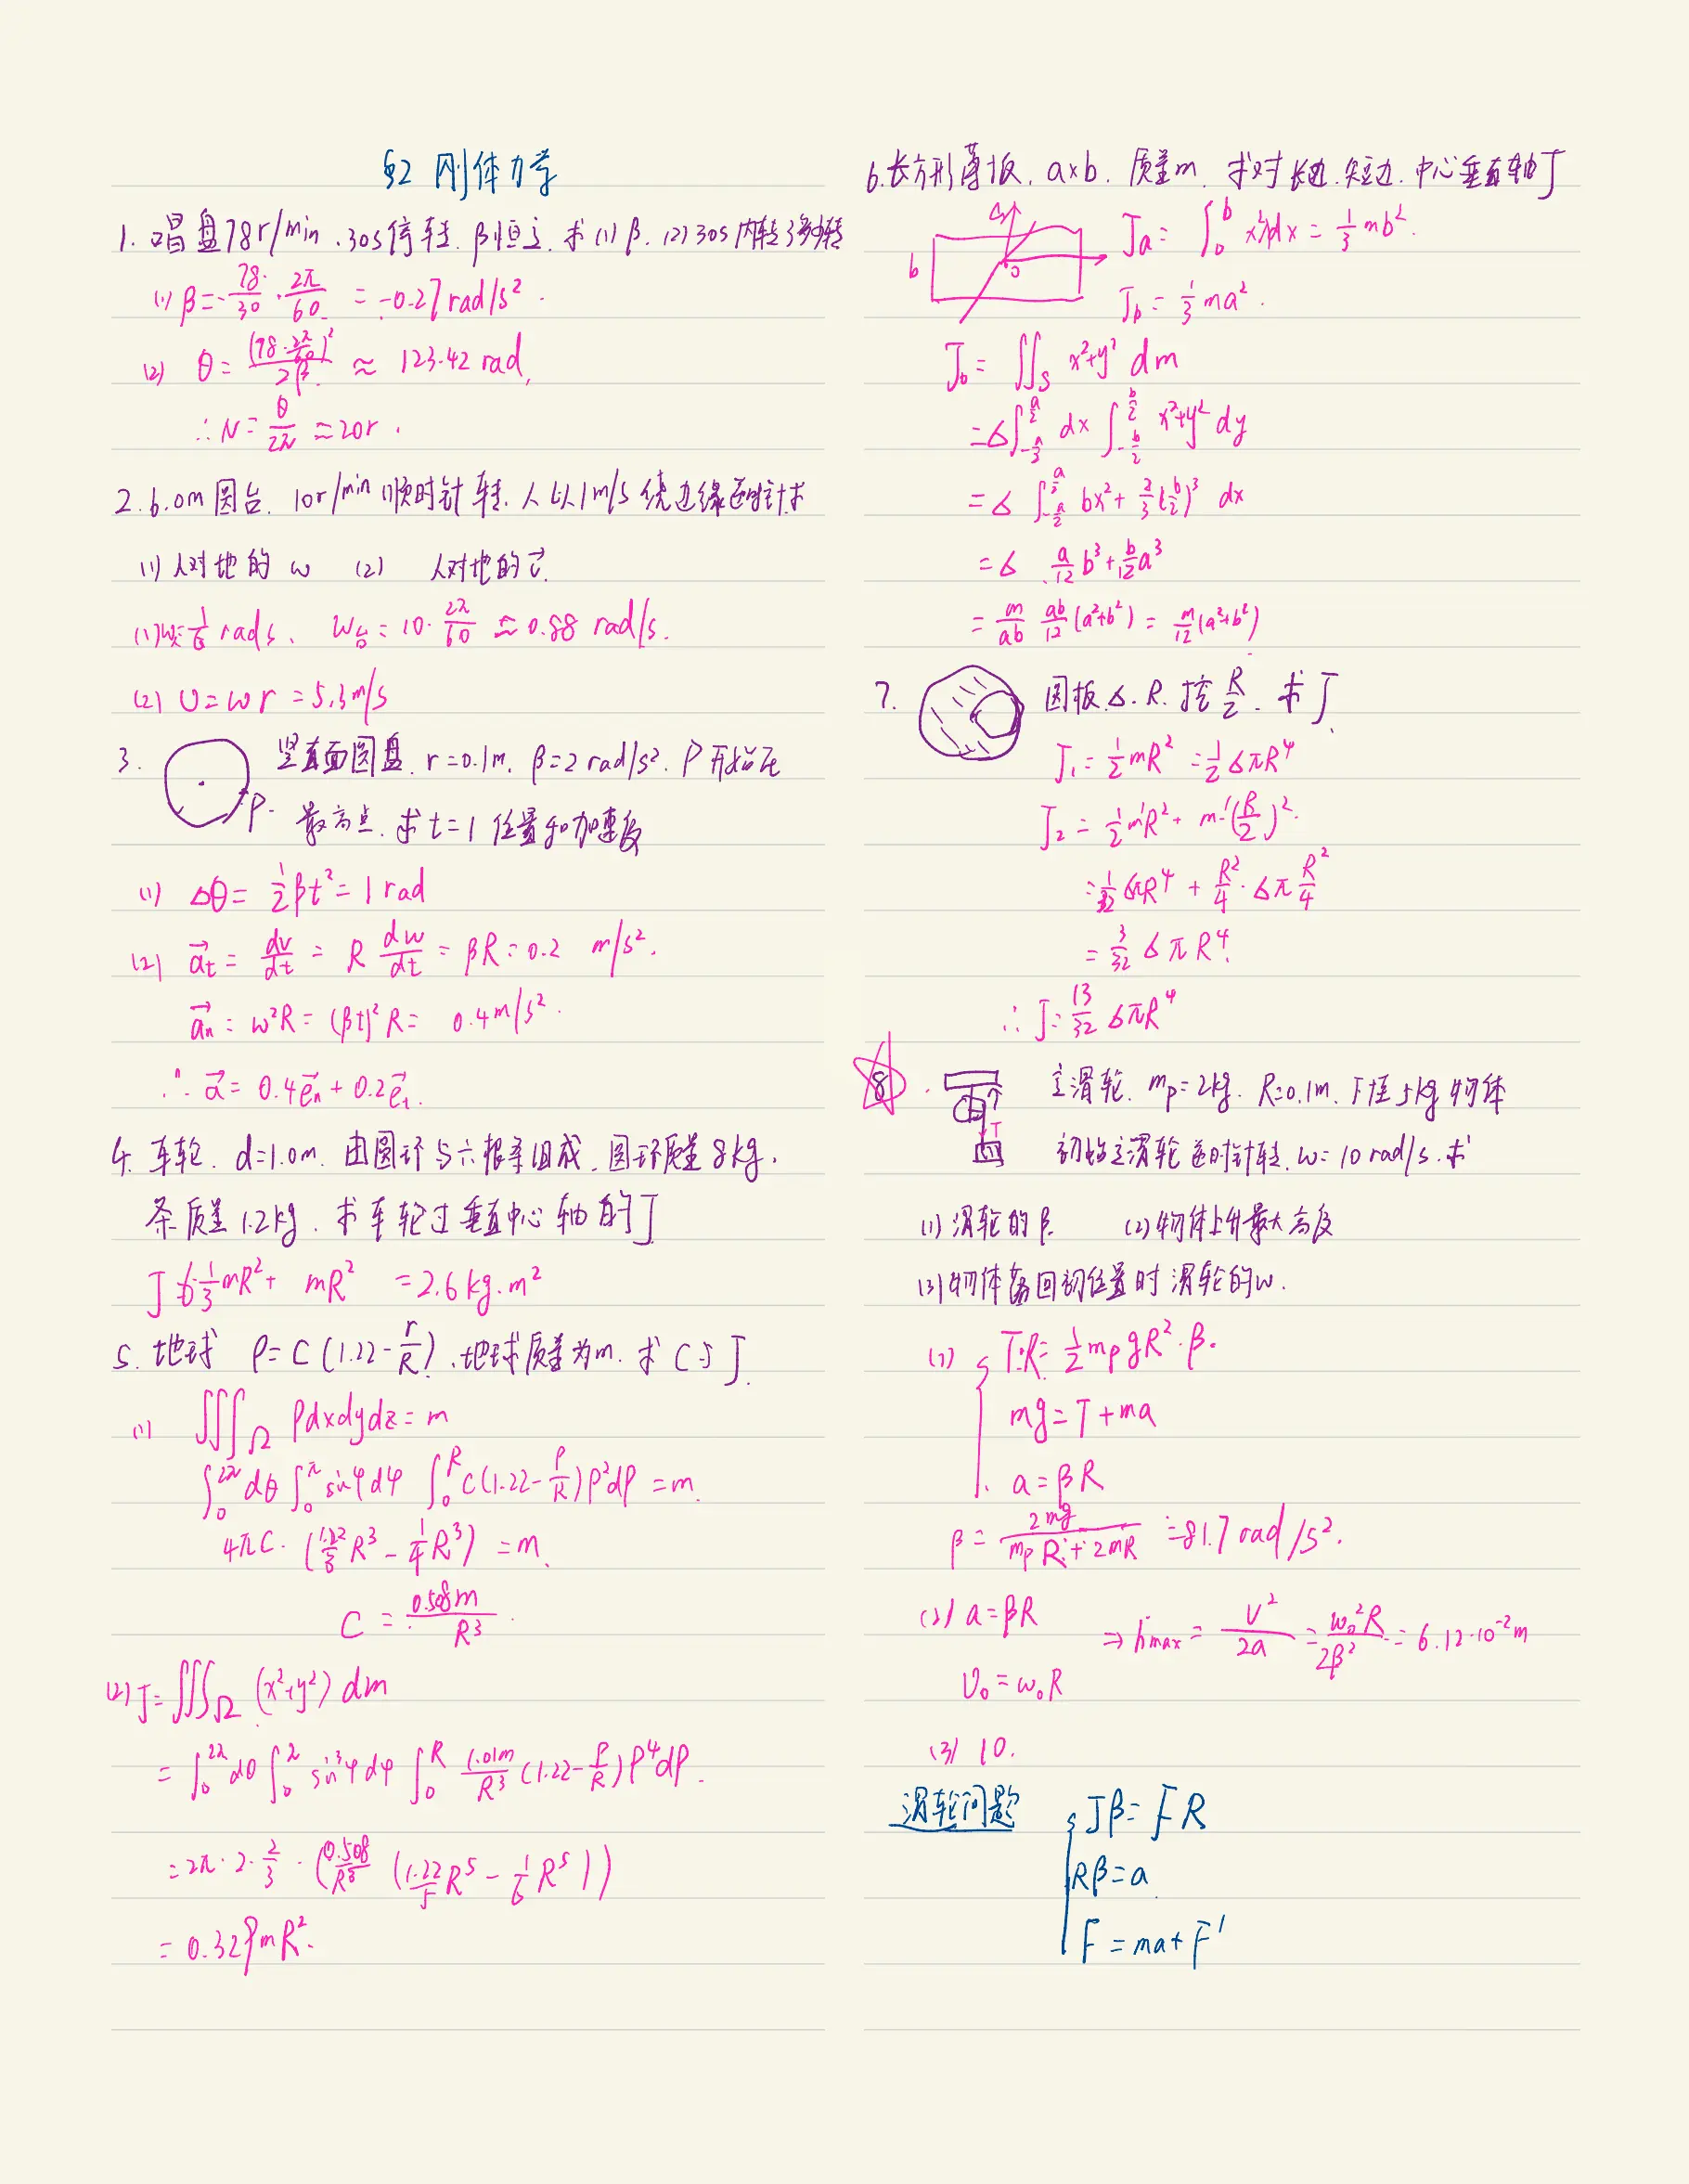 §2 刚体力学
1. 唱盘78r/min, 30s停转, β恒定, 求(1) β. (2) 30s内转了多少转
(1) β=-78/30·2π/60 = -0.27rad/s².
(2) θ=(78·2π/60)²/2β ≈ 123.42 rad,
∴N=θ/2π≈20r.
2. 6.0m圆台. 10r/min 顺时针转. 人以1m/s 绕边缘逆时针求
(1) 人对地的ω (2) 人对地的v⃗.
(1) ω=1/6 rad/s. ω台=10·2π/60≈0.88 rad/s.
(2) v=ωr=5.3m/s
3. 竖直面圆盘. r=0.1m. β=2rad/s². P开始在
P. 最高点. 求t=1位置和加速度
(1) Δθ=1/2βt²=1rad
(2) a⃗t=dv/dt=R dω/dt=βR=0.2 m/s².
a⃗n=ω²R=(βt)²R=0.4m/s².
∴ a⃗=0.4e⃗n+0.2e⃗t.
4. 车轮. d=1.0m. 由圆环与六根条组成. 圆环质量8kg.
条质量1.2kg. 求车轮过垂直中心轴的J
J 6·1/3mR²+mR² =2.6kg·m²
5. 地球 ρ=C(1.22-r/R). 地球质量为m. 求C与J
(1) ∭Ω ρdxdydz=m
∫₀^2π dθ∫₀^π sinφdφ ∫₀^R C(1.22-ρ/R)ρ²dρ=m.
4πC·(1.22/3R³-1/4R³)=m.
C=0.508m/R³.
(2) J=∭Ω(x²+y²)dm
=∫₀^2π dθ∫₀^π sin³φdφ∫₀^R 1.01m/R³(1.22-ρ/R)ρ⁴dρ.
=2π·2·2/3·(0.508/R³(1.22/5R⁵-1/6R⁵))
=0.329mR².
6. 长方形薄板. a×b. 质量m. 求对长边. 短边. 中心垂直轴J
a b o Ja=∫₀^b x²dx=1/3mb².
Jb=1/3ma².
J₀=∬S x²+y² dm
=δ∫_-a/2^a/2 dx∫_-b/2^b/2 x²+y²dy
=δ∫_-a/2^a/2 bx²+2/3(b/2)³ dx
=δ a/12b³+b/12a³
=m/ab ab/12(a²+b²)=m/12(a²+b²)
7. 圆板δ. R. 挖R/2. 求J
J₁=1/2mR²=1/2δπR⁴
J₂=1/2m'R²+m'(R/2)².
=1/32δπR⁴+R²/4·δπR²/4
=3/32δπR⁴.
∴J=13/32δπR⁴
8. T 主滑轮. mp=2kg. R=0.1m. 下挂5kg物体
初始主滑轮逆时针转. ω=10rad/s. 求
(1) 滑轮的β. (2) 物体上升最大高度
(3) 物体落回初位置时滑轮的ω.
(1) T·R=1/2mpgR²·β.
mg=T+ma
a=βR
β=2mg/mpR+2mR=81.7rad/s².
(2) a=βR ⇒hmax=v²/2a=ω₀²R/2β²=6.12·10⁻²m
v₀=ω₀R
(3) 10.
滑轮问题 Jβ=FR
Rβ=a
F=ma+F'